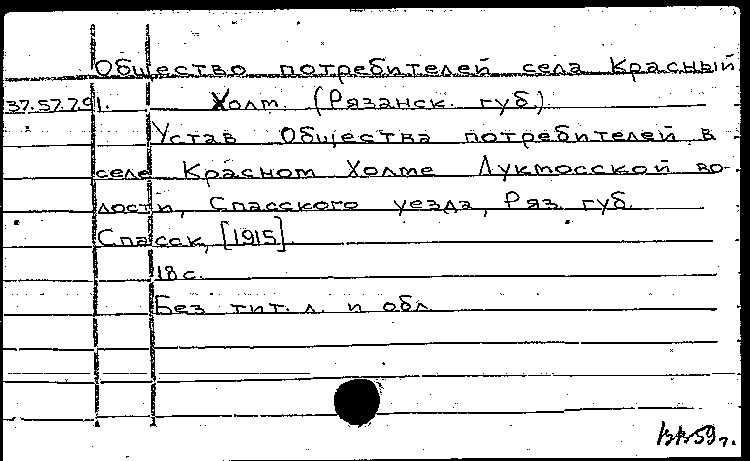 Общество потребителей села Красный
37.57.7.91. Холм. (Рязанск. губ.)
Устав Общества потребителей в
селе Красном Холме Лукмосской во-
лости, Спасского уезда, Ряз. губ.
Спасск, [1915].
18 с.
Без тит. л. и обл.
59 г.